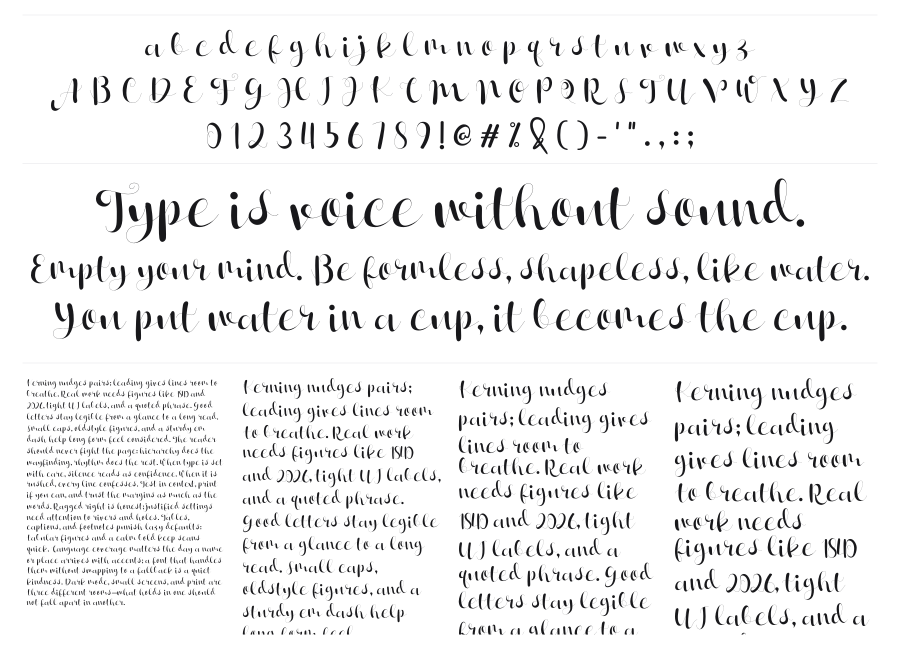 a b c d e f g h i j k l m n o p q r s t u v w x y z
A B C D E F G H I J K L M N O P Q R S T U V W X Y Z
0 1 2 3 4 5 6 7 8 9 ! @ # % & ( ) - ' " . , : ;
Type is voice without sound.
Empty your mind. Be formless, shapeless, like water.
You put water in a cup, it becomes the cup.
Kerning nudges pairs; leading gives lines room to
breathe. Real work needs figures like 1510 and
2026, tight UI labels, and a quoted phrase. Good
letters stay legible from a glance to a long read.
Small caps, oldstyle figures, and a sturdy em
dash help long form feel considered. The reader
should never fight the page: hierarchy does the
wayfinding, rhythm does the rest. When type is set
with care, silence reads as confidence. When it is
rushed, every line confesses. Test in context, print
if you can, and trust the margins as much as the
words. Ragged right is honest; justified settings
need attention to rivers and holes. Tables,
captions, and footnotes punish lazy defaults:
tabular figures and a calm bold keep scans
quick. Language coverage matters the day a name
or place arrives with accents; a font that handles
them without swapping to a fallback is a quiet
kindness. Dark mode, small screens, and print are
three different rooms—what holds in one should
not fall apart in another.
Kerning nudges pairs;
leading gives lines room
to breathe. Real work
needs figures like
and 2026, tight UI labels,
and a quoted phrase.
Good letters stay legible
from a glance to a long
read. Small caps,
oldstyle figures, and a
sturdy em dash help
long form feel
Kerning nudges
pairs; leading gives
lines room to
breathe. Real work
needs figures like
and 2026, tight
UI labels, and a
quoted phrase. Good
letters stay legible
from a glance to a
Kerning nudges
pairs; leading
gives lines room
to breathe. Real
work needs
figures like
and 2026, tight
UI labels, and a